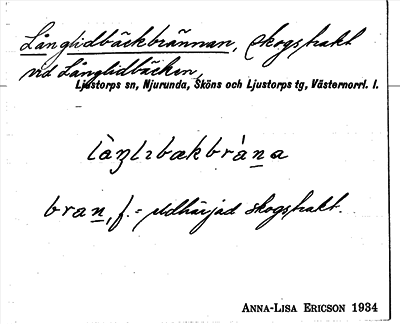 Långlidbäckbrännan, skogstrakt
vid Långlidbäcken.
Ljustorps sn, Njurunda, Sköns och Ljustorps tg, Västernorrl. l.
bran, f. = eldhärjad skogstrakt.
ANNA-LISA ERICSON 1934